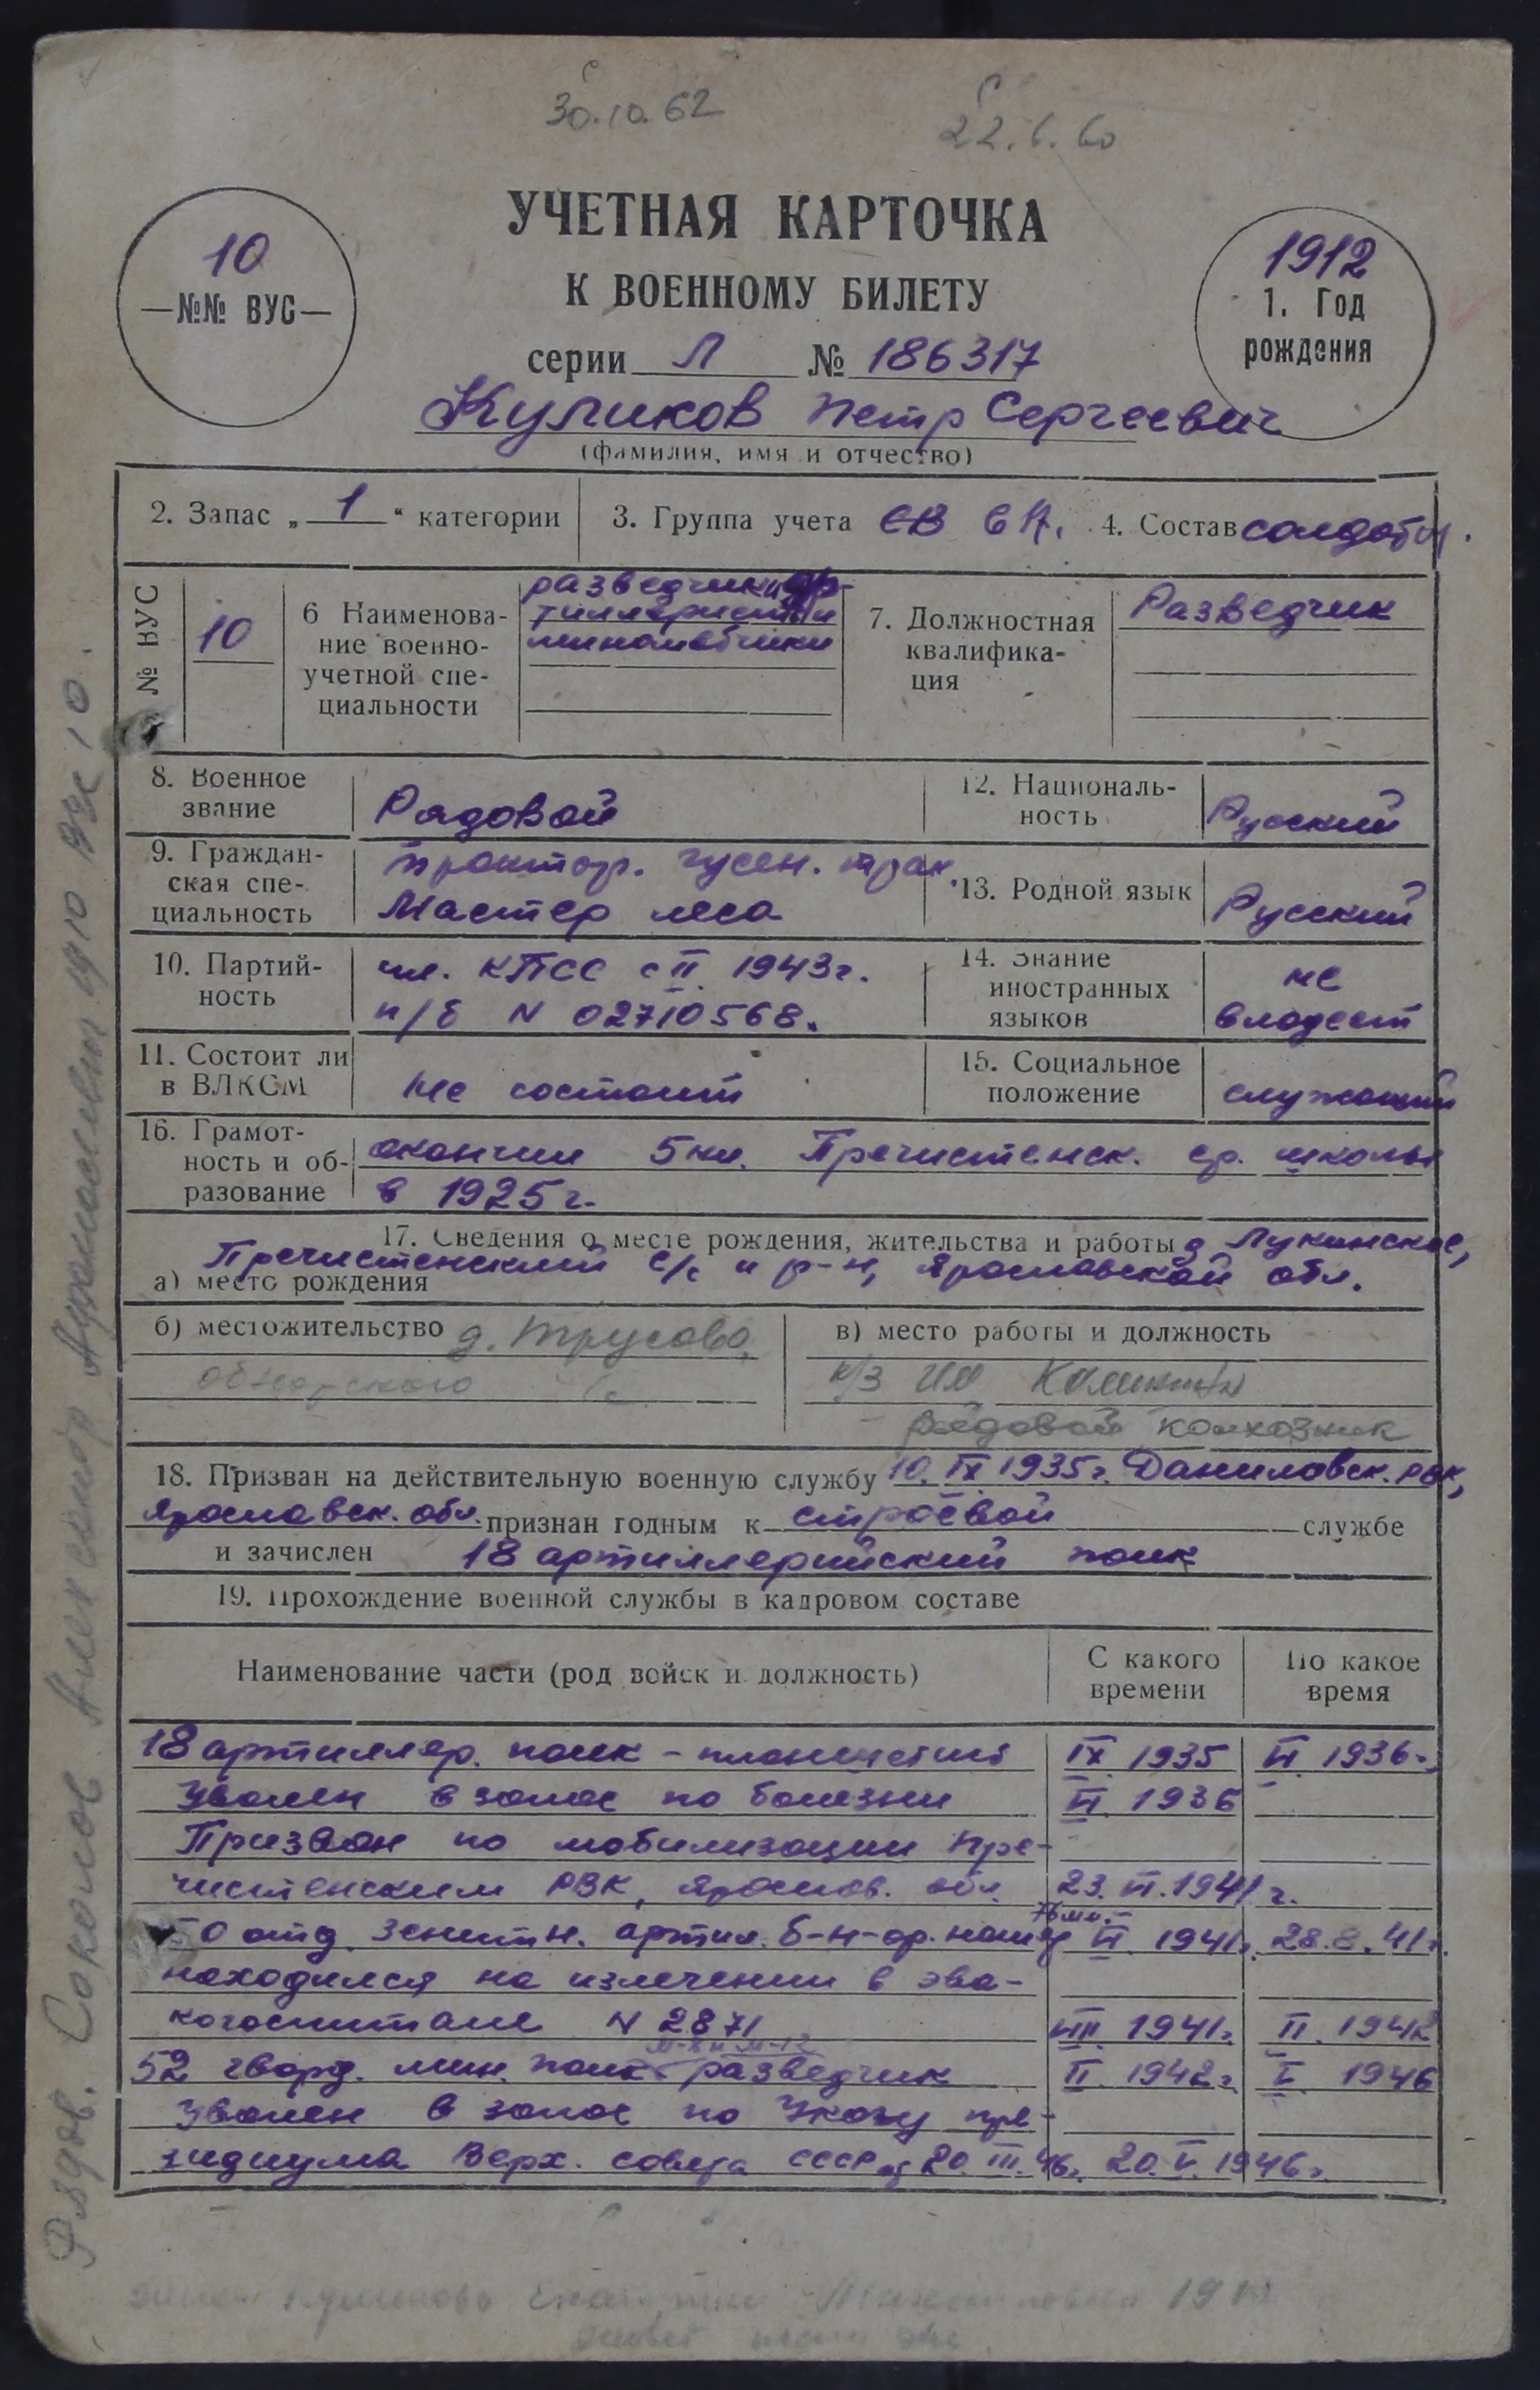 30.10.62
22.6.60
УЧЕТНАЯ КАРТОЧКА
К ВОЕННОМУ БИЛЕТУ
серии Л № 186317
10
—№№ ВУС—
1912
1. Год
рождения
Куликов Петр Сергеевич
(фамилия, имя и отчество)
2. Запас „ 1 “ категории
3. Группа учета СВ СА.
4. Состав солдаты.
№ ВУС
10
6 Наименова-
ние военно-
учетной спе-
циальности
разведчики ар-
тиллеристы и
минометчики
7. Должностная
квалифика-
ция
Разведчик
8. Военное
звание
Рядовой
12. Националь-
ность
Русский
9. Граждан-
ская спе-
циальность
трактор. гусен. трак.
Мастер леса
13. Родной язык
Русский
10. Партий-
ность
чл. КПСС с II. 1943г.
п/б N 02710568.
14. Знание
иностранных
языков
не
владеет
11. Состоит ли
в ВЛКСМ
не состоит
15. Социальное
положение
служащий
16. Грамот-
ность и об-
разование
окончил 5 кл. Пречистенск. ср. школы
в 1925 г.
17. Сведения о месте рождения, жительства и работы д Лукинское,
Пречистенский с/с и р-н, Ярославской обл.
а) место рождения
б) местожительство д. Трусово,
с/с
в) место работы и должность
к/з им Калинина
рядовой колхозник
18. Призван на действительную военную службу 10. IX 1935г. Даниловск. РВК,
Ярославск. обл. признан годным к строевой службе
и зачислен 18 артиллерийский полк
19. Прохождение военной службы в кадровом составе
Наименование части (род войск и должность)
С какого
времени
По какое
время
18 артиллер. полк – планшетист IX 1935 VI 1936.
Уволен в запас по болезни VI. 1936
Призван по мобилизации Пре-
чистенским РВК, Яросл. обл. 23. VI. 1941 г.
76 мм.
50 отд. зенитн. артил. б-н-ор. VI. 1941г. 28.8.41г.
находился на излечении в эва-
когоспитале N 2871 VIII 1941г. II. 1942
М-8 и М-13
52 гвард. мин. полк разведчик II. 1942г. V. 1946
Уволен в запас по Указу пре-
зидиума Верх. совета СССР от 20. III. 46г. 20. V. 1946г.
Рядов. Соколов Александр 1910 ВУС 10.
жена Куликова 19